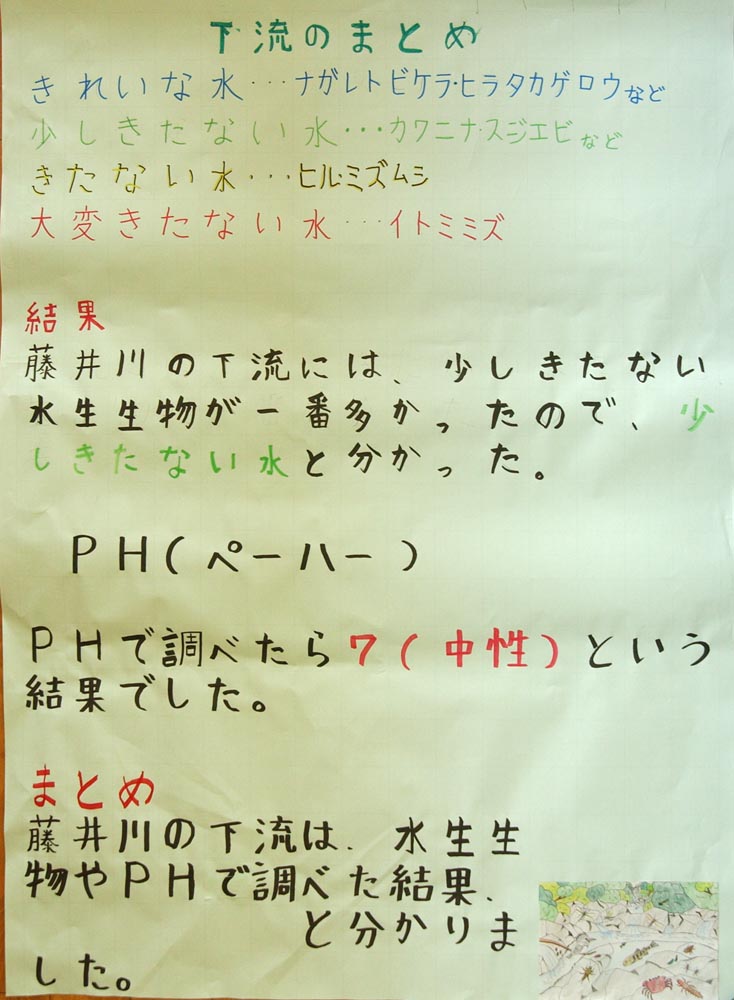 下流のまとめ
きれいな水…ナガレトビケラ・ヒラタカゲロウなど
少しきたない水…カワニナ・スジエビなど
きたない水…ヒル・ミズムシ
大変きたない水…イトミミズ
結果
藤井川の下流には、少しきたない
水生生物が一番多かったので、少
しきたない水と分かった。
PH(ペーハー)
PHで調べたら7(中性)という
結果でした。
まとめ
藤井川の下流は、水生生
物やPHで調べた結果、
と分かりま
した。